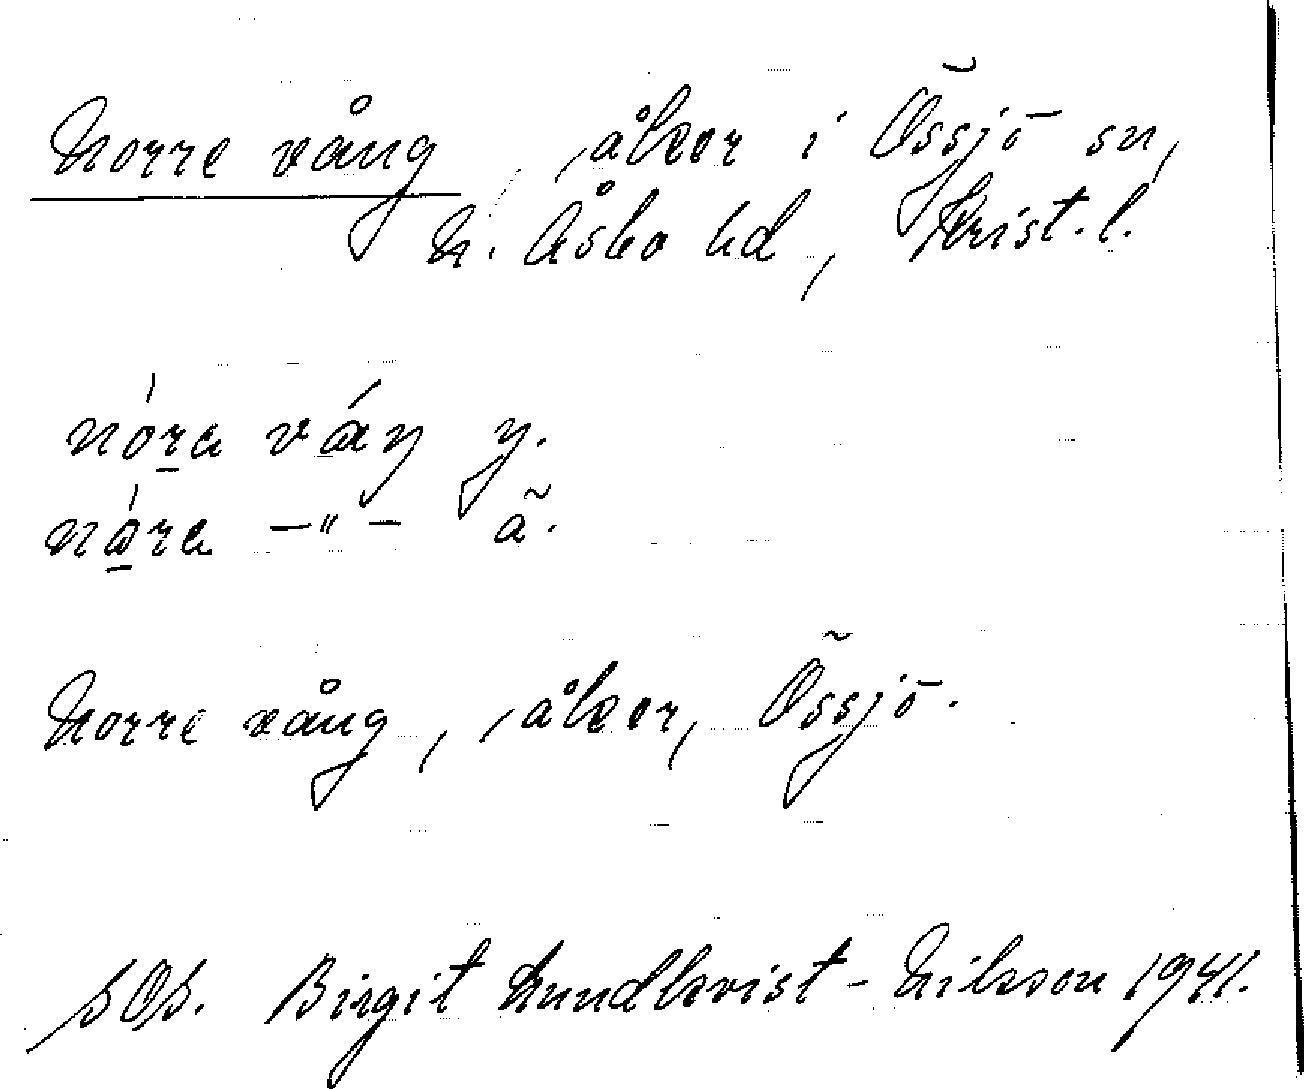 Norre vång, åker i Össjö sn,
N. Åsbo hd, Krist. l.
nóra váŋ y.
nǻra –"– ã.
Norre vång, åker, Össjö.
Birgit Lundkvist-Nilsson 1941.